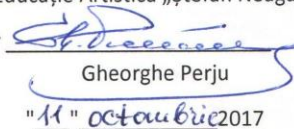 Educație Artistică „Ștefan Neaga
Gheorghe Perju
"11" octombrie 2017